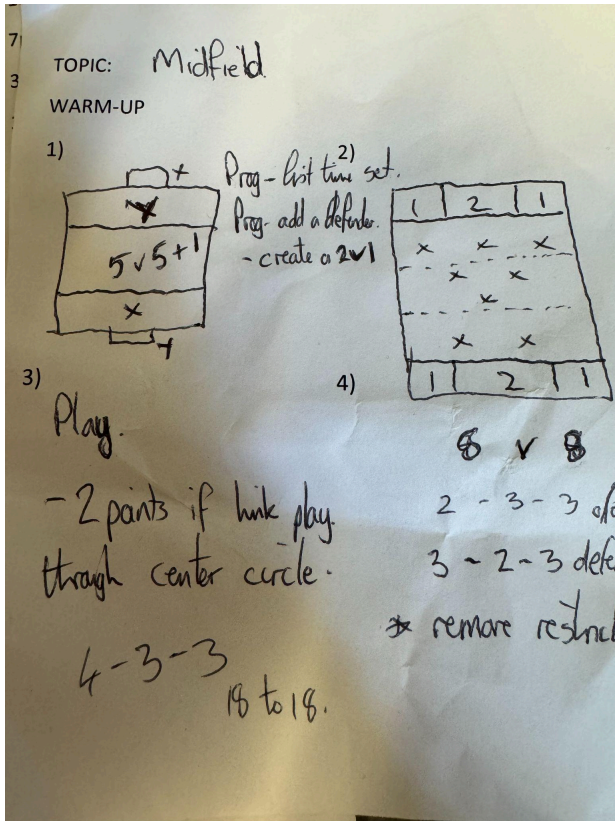 7
3
TOPIC: Midfield
WARM-UP
1)
x
x
5v5+1
x
x
Prog - first time set.
Prog - add a defender.
- create a 2v1
2)
1 2 1
x x x
x x
x
x x
1 2 1
3)
Play.
- 2 points if link play.
through center circle.
4-3-3
18 to 18.
4)
8 v 8
2 - 3 - 3
3 - 2 - 3 defe
* remove restric